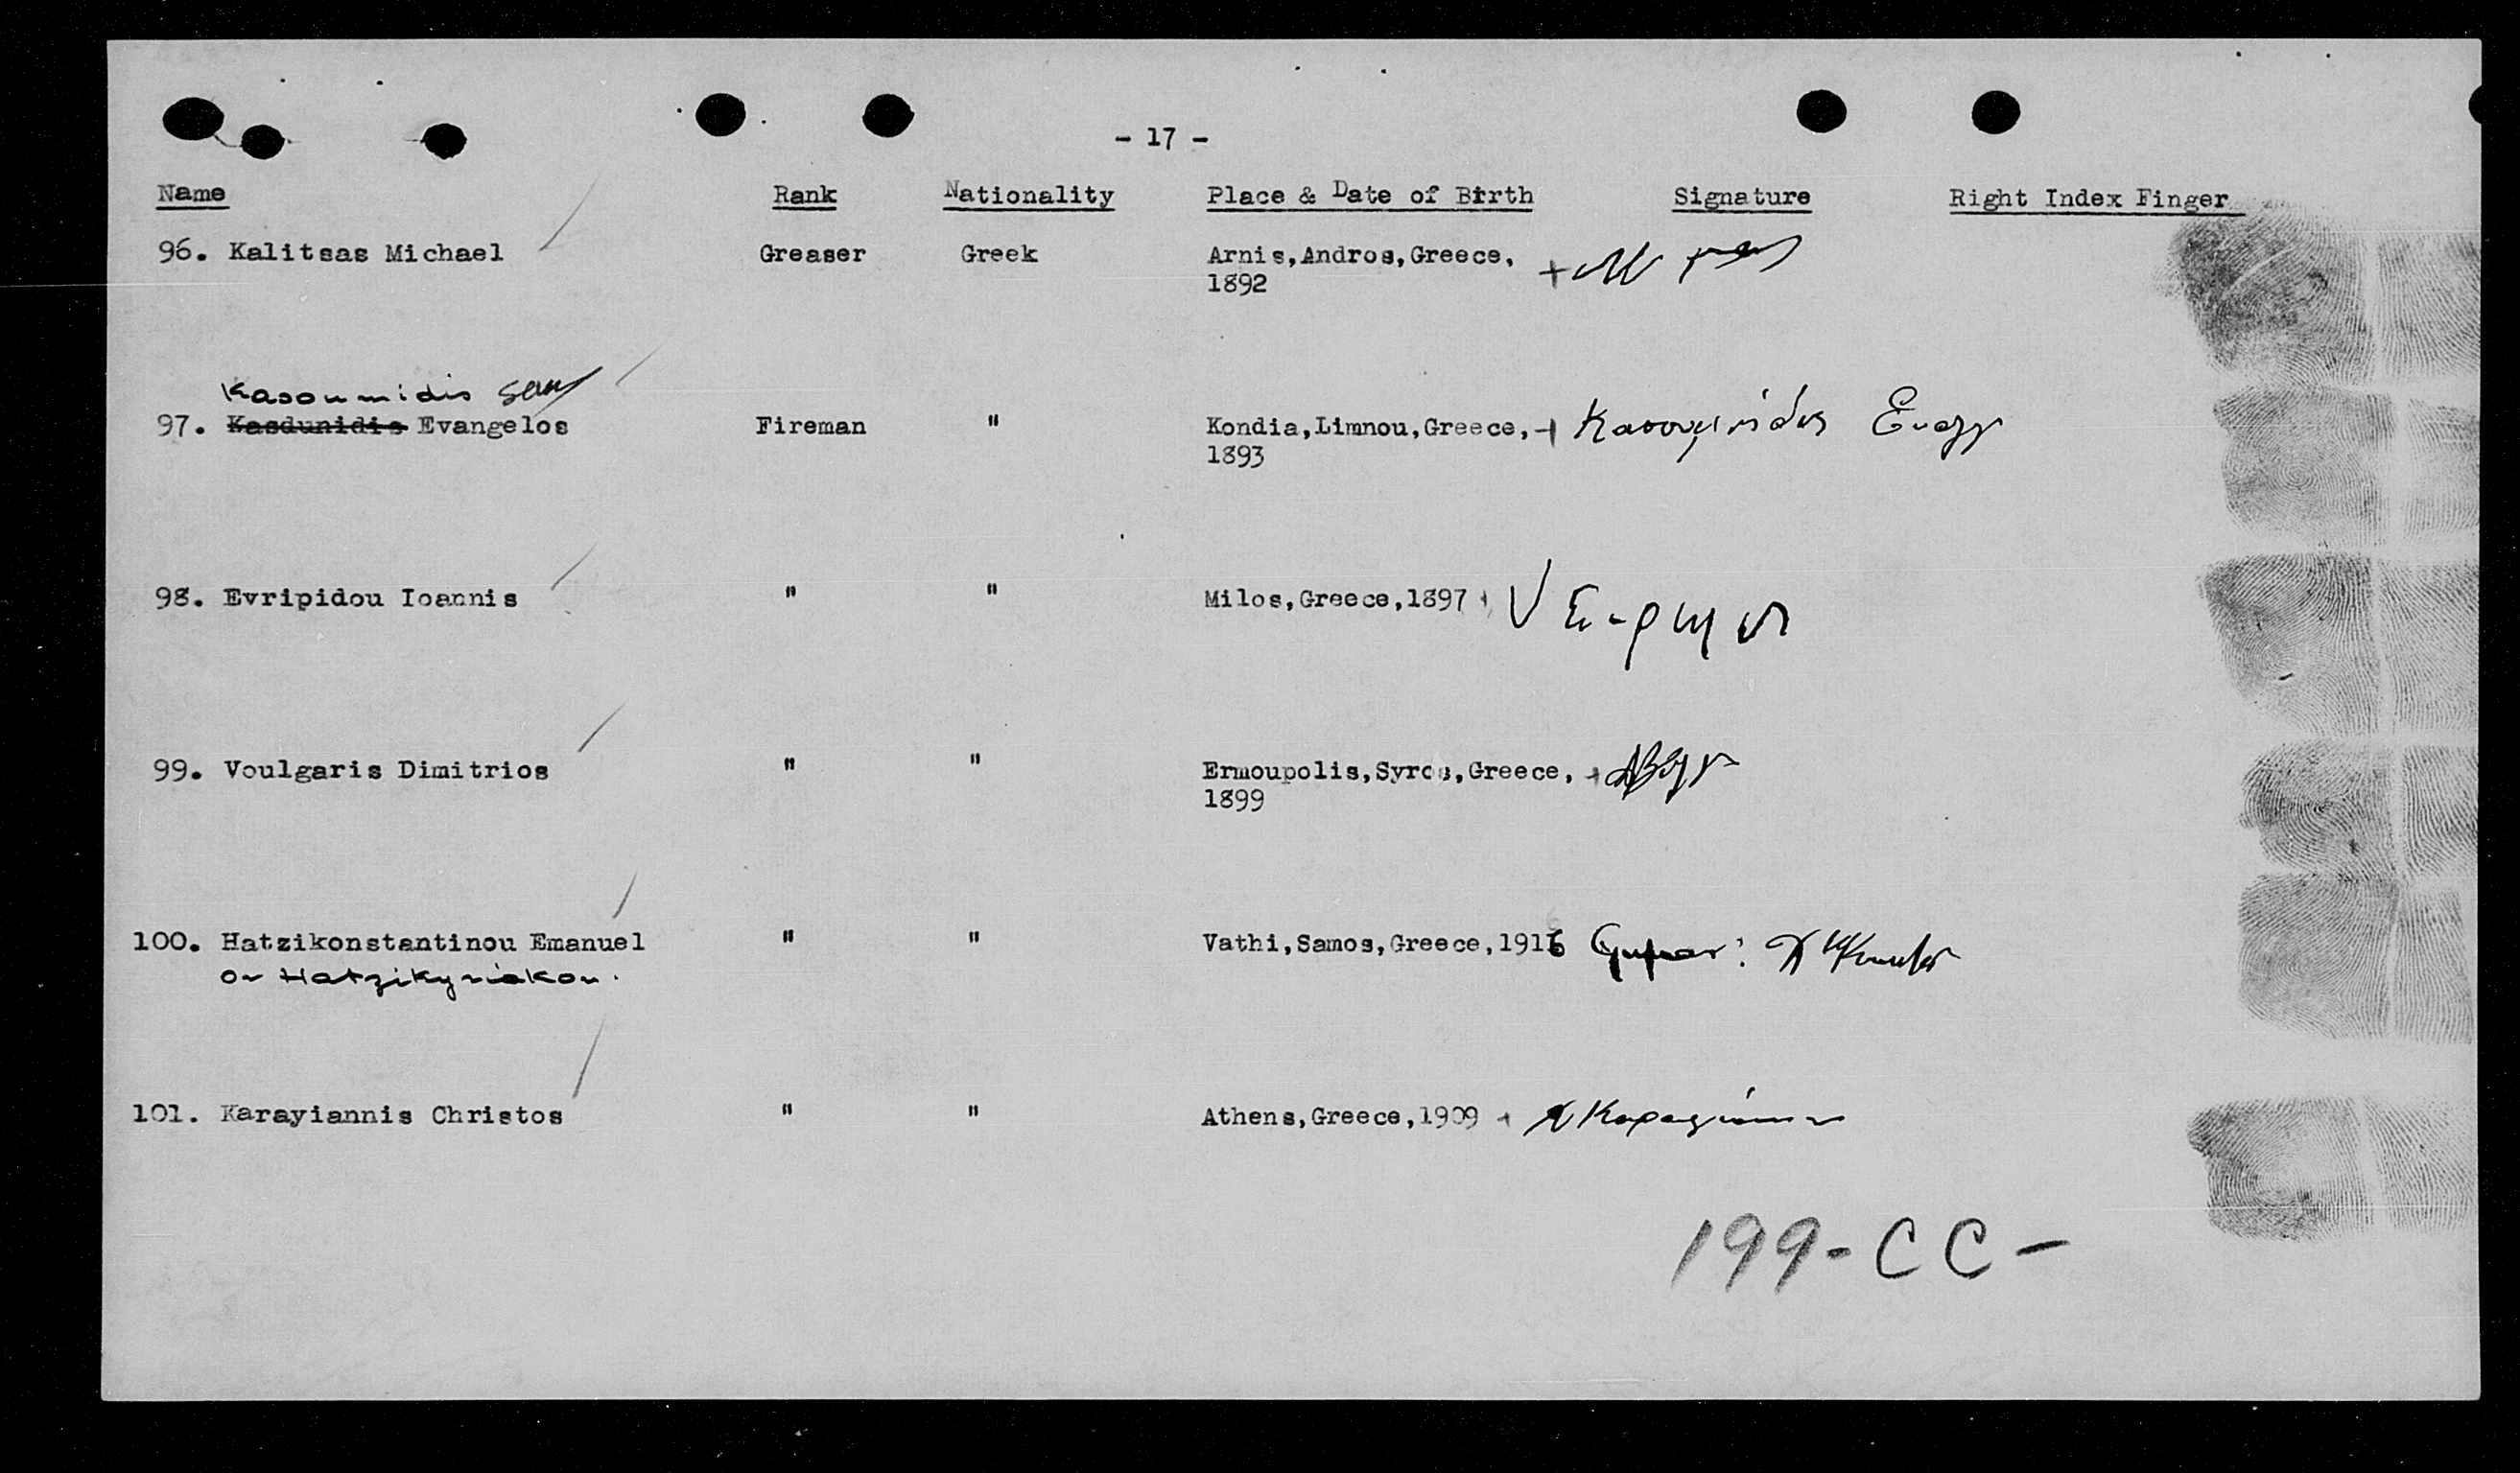 - 17 -
Name Rank Nationality Place & Date of Birth Signature Right Index Finger
96. Kalitsas Michael Greaser Greek Arnis,Andros,Greece, +
1892
Kasoumidis
97. Kasdunidis Evangelos Fireman " Kondia,Limnou,Greece, + Κασουμίδης Ευαγγ
1893
98. Evripidou Ioannis " " Milos,Greece,1897
99. Voulgaris Dimitrios " " Ermoupolis,Syros,Greece,
1899
100. Hatzikonstantinou Emanuel " " Vathi,Samos,Greece,1916
or Hatzikyriakou.
101. Karayiannis Christos " " Athens,Greece,1909 Χ Καραγιάννης
199-CC-